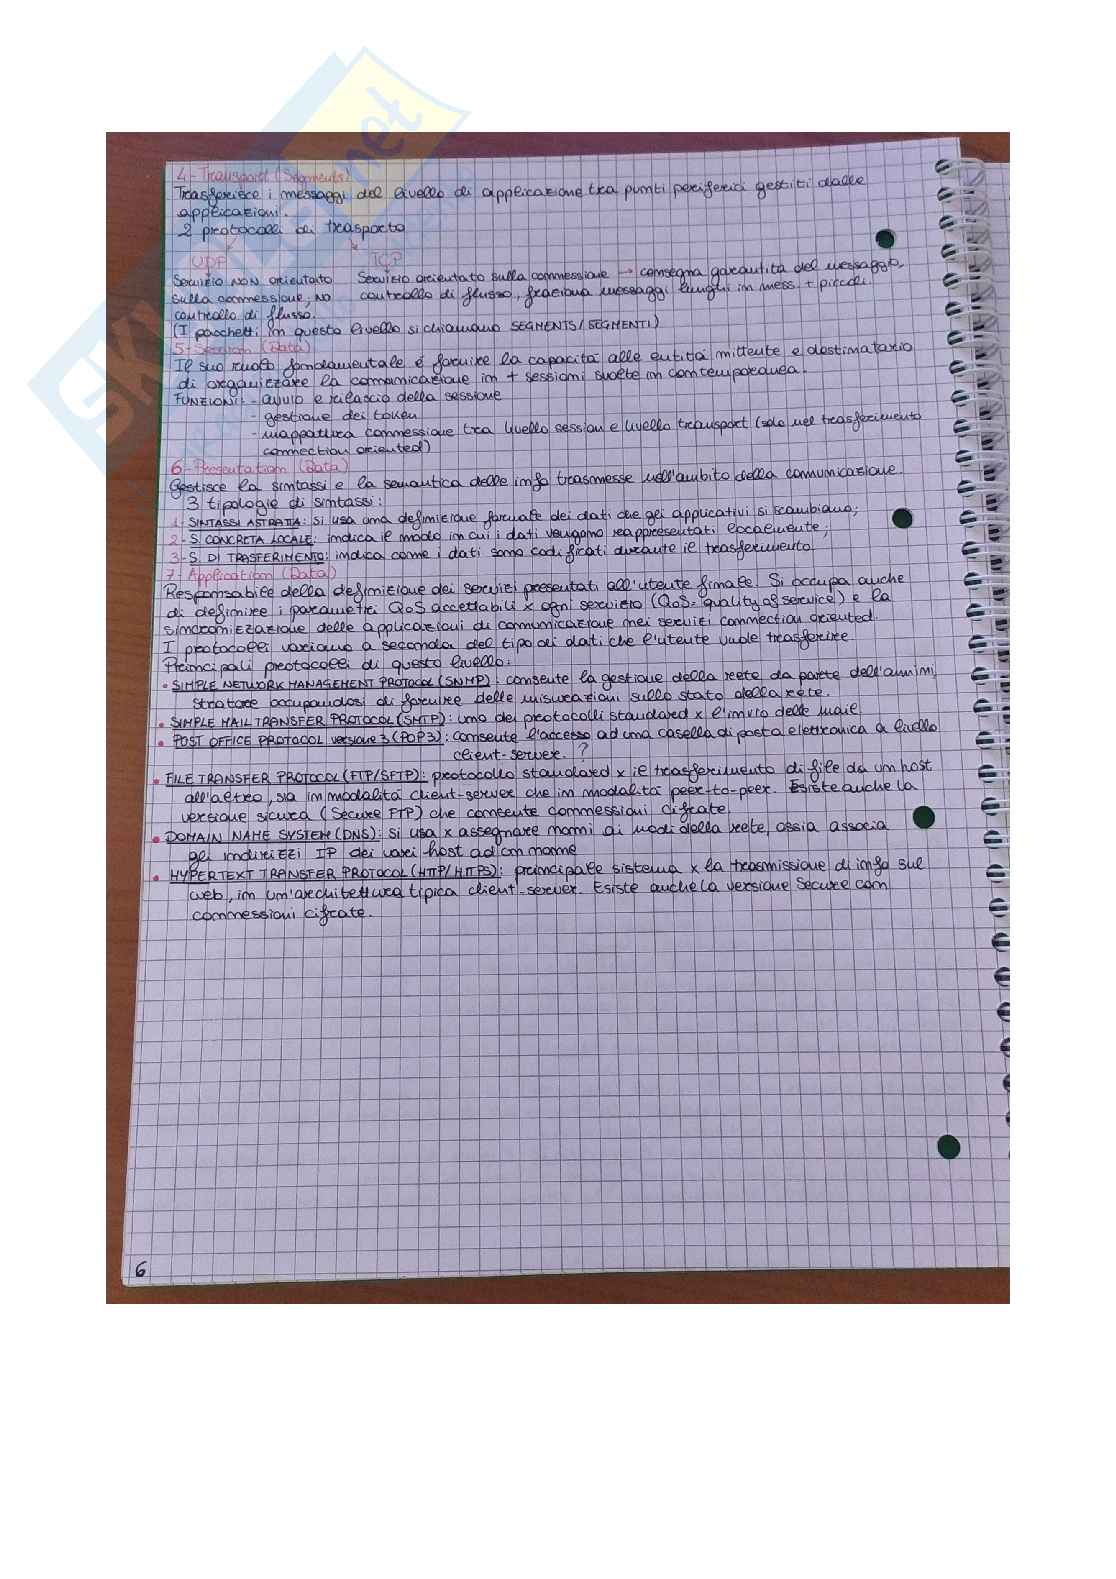 SKUOLA.net
4-Transport (Segments)
Trasferisce i messaggi del livello di applicazione tra punti periferici gestiti dalle
applicazioni.
2 protocolli di trasporto
UDP TCP
Servizio NON orientato Servizio orientato sulla connessione → consegna garantita del messaggio,
sulla connessione, NO controllo di flusso, fraziona messaggi lunghi in mess. + piccoli
controllo di flusso.
(I pacchetti in questo livello si chiamano SEGMENTS/SEGMENTI)
5-Session (Data)
Il suo ruolo fondamentale è fornire la capacità alle entità mittente e destinatario
di organizzare la comunicazione in + sessioni svolte in contemporanea.
FUNZIONI: - avvio e rilascio della sessione
- gestione dei token
- mappatura connessione tra livello session e livello transport (solo nel trasferimento
connection oriented)
6-Presentation (Data)
Gestisce la sintassi e la semantica delle info trasmesse nell'ambito della comunicazione.
3 tipologie di sintassi:
1- SINTASSI ASTRATTA: si usa una definizione formale dei dati che gli applicativi si scambiano;
2- S. CONCRETA LOCALE: indica il modo in cui i dati vengono rappresentati localmente;
3- S. DI TRASFERIMENTO: indica come i dati sono codificati durante il trasferimento
7-Application (Data)
Responsabile della definizione dei servizi presentati all'utente finale. Si occupa anche
di definire i parametri QoS accettabili x ogni servizio (QoS= quality of service) e la
sincronizzazione delle applicazioni di comunicazione nei servizi connection oriented.
I protocolli variano a seconda del tipo di dati che l'utente vuole trasferire.
Principali protocolli di questo livello:
• SIMPLE NETWORK MANAGEMENT PROTOCOL (SNMP): consente la gestione della rete da parte dell'ammini
stratore occupandosi di fornire delle misurazioni sullo stato della rete.
• SIMPLE MAIL TRANSFER PROTOCOL (SMTP): uno dei protocolli standard x l'invio delle mail
• POST OFFICE PROTOCOL versione 3 (POP3): consente l'accesso ad una casella di posta elettronica a livello
client-server. ?
• FILE TRANSFER PROTOCOL (FTP/SFTP): protocollo standard x il trasferimento di file da un host
all'altro, sia in modalità client-server che in modalità peer-to-peer. Esiste anche la
versione sicura (Secure FTP) che consente connessioni cifrate
• DOMAIN NAME SYSTEM (DNS): si usa x assegnare nomi ai nodi della rete, ossia associa
gli indirizzi IP dei vari host ad un nome
• HYPERTEXT TRANSFER PROTOCOL (HTTP/HTTPS): principale sistema x la trasmissione di info sul
web, in un'architettura tipica client-server. Esiste anche la versione Secure con
connessioni cifrate.
6